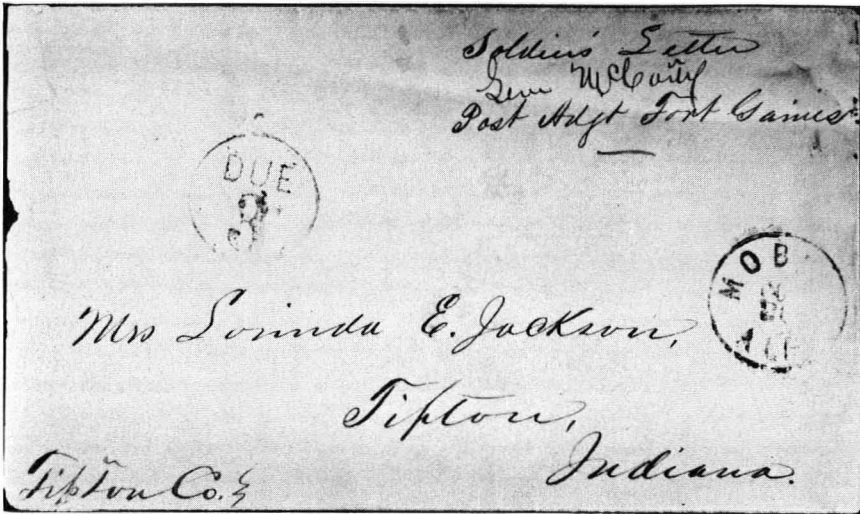 Soldier's Letter
Post Adgt Fort Gaines
DUE
3
MOB
ALA
Mrs Lorinda E. Jackson,
Tipton,
Indiana.
Tipton Co.